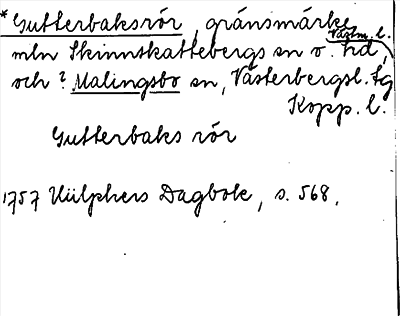 *Gutterbaksrör, gränsmärke
mln Skinnskattebergs sn o. hd, Västm. l.
och ? Malingsbo sn, Västerbergsl. fg
Kopp. l.
Gutterbaks rör
1757 Hülphers Dagbok, s. 568.